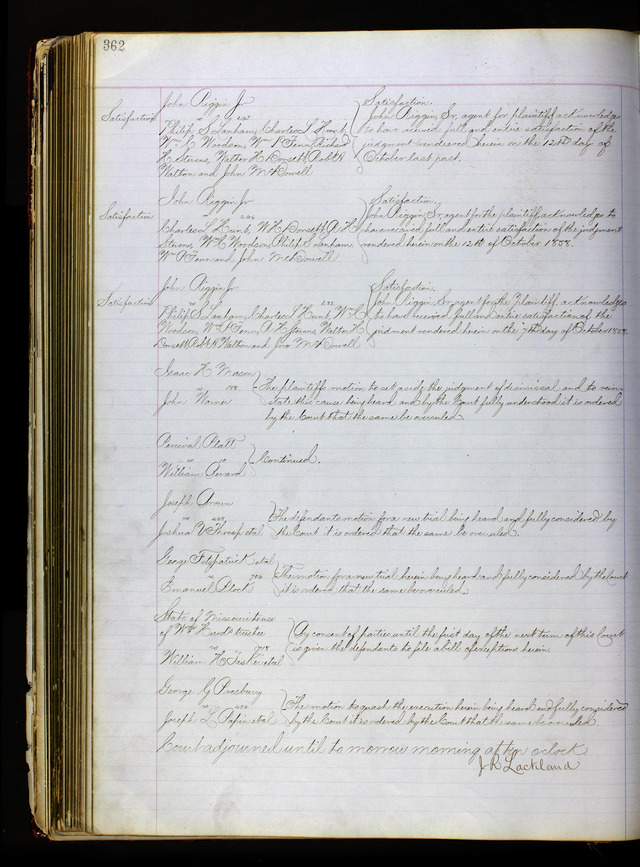 362
John Riggin Jr
Satisfaction
vs
Philip S Lanham, Charles L Hunt,
Wm C Woodson, Wm P Fenn, Richard
H Stevens, Walter H Dorsett, Robt R
Walton and John McDowell
Satisfaction.
John Riggin Sr. agent for plaintiff acknowledges
to have received full and entire satisfaction of the
judgment rendered herein on the 12th day of
October last past.
John Riggin Jr
Satisfaction
vs
Charles L Hunt, W H Dorsett, R H
Stevens, W C Woodson, Philip S Lanham,
Wm P Fenn and John McDowell
Satisfaction.
John Riggin Sr. agent for the plaintiff acknowledges to
have received full and entire satisfaction of the judgment
rendered herein on the 12th of October 1858.
John Riggin Jr
Satisfaction
vs
Philip S Lanham, Charles L Hunt, Wm C
Woodson, Wm P Fenn, R H Stevens, Walter H
Dorsett, Robt R Walton and Jno McDowell
Satisfaction.
John Riggin Sr. agent for the plaintiff acknowledges
to have received full and entire satisfaction of the
judgment rendered herein on the 7th day of October 1858.
Isaac H Mason
vs
John Warner
The plaintiffs motion to set aside the judgment of dismissal and to rein-
state this cause being heard and by the Court fully understood it is ordered
by the Court that the same be overuled.
Percival Platt
vs
William
Continued.
Joseph Brown
vs
Joshua V Throop etal
The defendants motion for a new trial being heard and fully considered by
the Court it is ordered that the same be overuled.
George Fitzpatrick etal
vs
Emanuel Block
The motion for a new trial herein being heard and fully considered by the Court
it is ordered that the same be overuled.
State of Missouri to use
of Wm Hunt trustee
vs
William H etal
By consent of parties until the first day of the next term of this Court
is given the defendants to file a bill of exceptions herein.
George G Presbury
vs
Joseph L Papin etal
The motion to quash the execution herein being heard and fully considered
by the Court it is ordered by the Court that the same be overuled.
Court adjourned until to morrow morning at ten oclock
J R Lackland